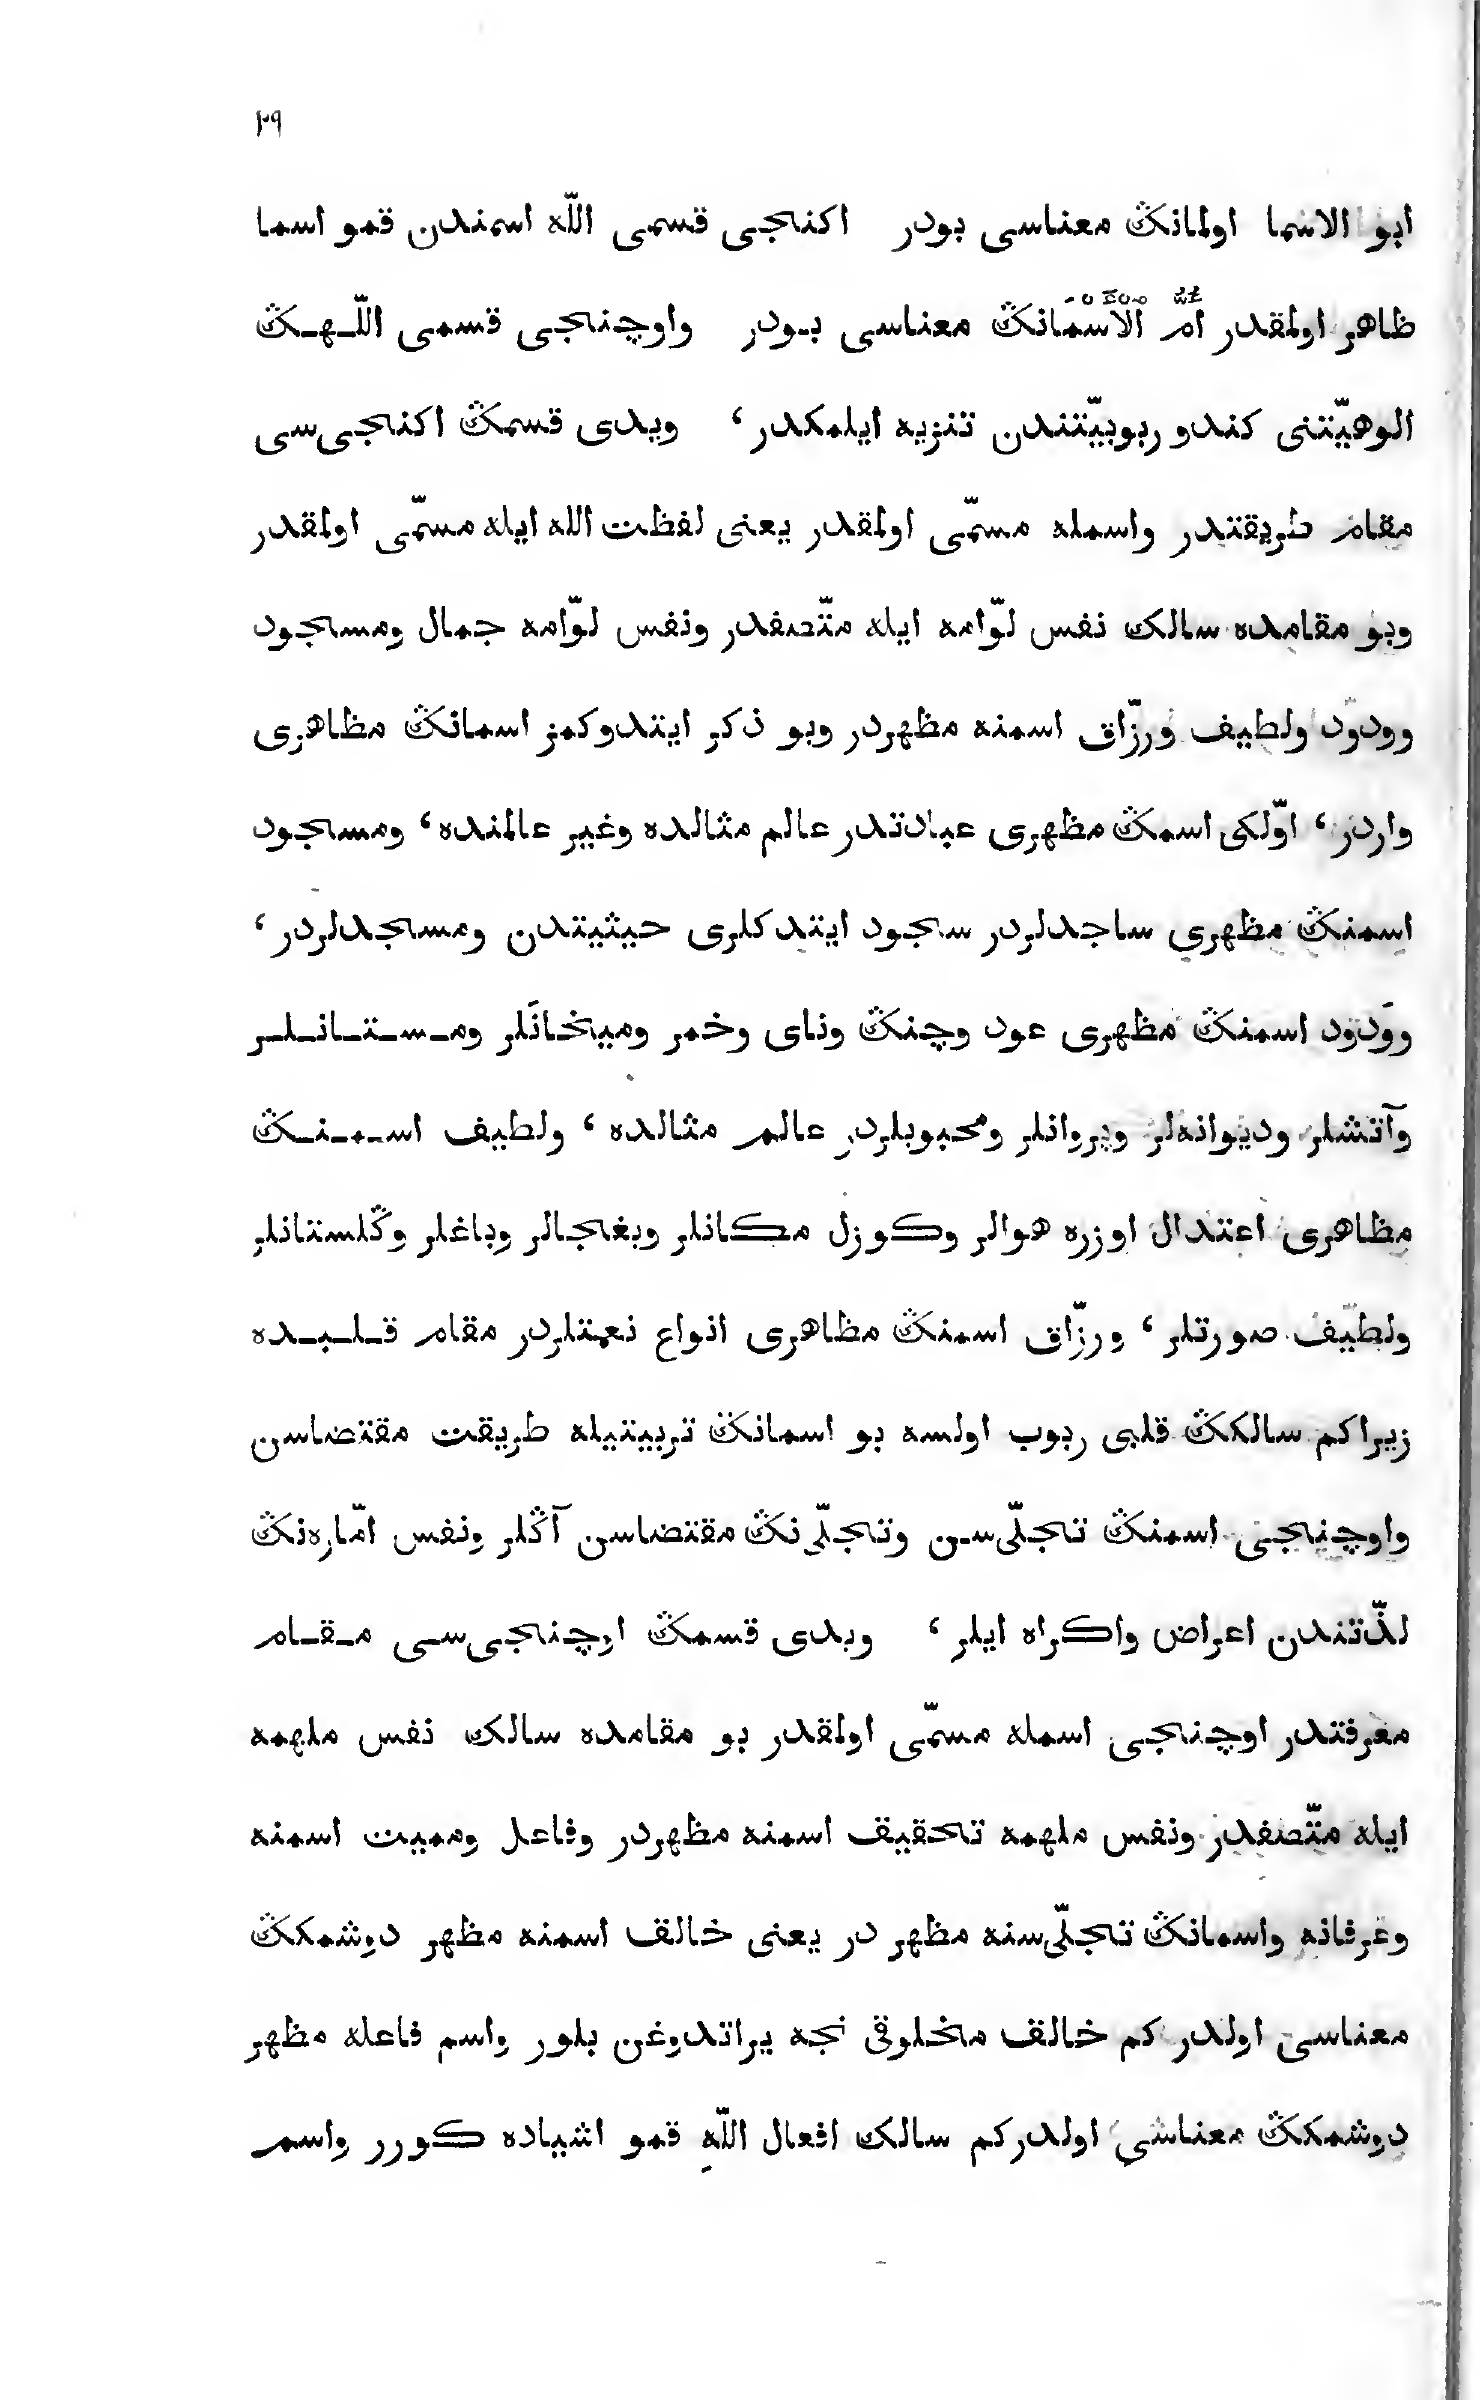 ٢٩
ابو الاسما اولمانڭ معناسى بودر اكنجى قسمى اللّه اسمندن قمو اسما
ظاهر اولمقدر امّ الاسمانڭ معناسى بـودر واوچنجى قسمى اللّـهـڭ
الوهيّتنى كندو ربوبيّتندن تنزيه ايلمكدر، ويدى قسمڭ اكنجى‌سى
مقام طريقتدر واسمله مسمّى اولمقدر يعنى لفظت الله ايله مسمّى اولمقدر
وبو مقامده سالك نفس لوّامه ايله متّصفدر ونفس لوّامه جمال ومسجود
وودود ولطيف ورزّاق اسمنه مظهردر وبو ذكر ايتدوكمز اسمانڭ مظاهرى
واردر، اوّلكى اسمڭ مظهرى عبادتدر عالم مثالده وغير عالمنده، ومسجود
اسمنڭ مظهرى ساجدلردر سجود ايتدكلرى حيثيتدن ومسجدلردر،
وودود اسمنڭ مظهرى عود وچنڭ وناى وخمر وميخانَلر ومـسـتـانـلـر
وآتشلر وديوانه‌لر وپروانلر ومحبوبلردر عالم مثالده، ولطيف اسـمـنـڭ
مظاهرى اعتدال اوزره هوالر وكوزل مكانلر وبغجالر وباغلر وگلستانلر
ولطيف صورتلر، ورزّاق اسمنڭ مظاهرى انواع نعمتلردر مقام قـلـبـده
زيراكم سالكڭ قلبى ربوب اولسه بو اسمانڭ تربيتيله طريقت مقتضاسن
واوچنجى اسمنڭ تجلّى‌سـن وتجلّى‌نڭ مقتضاسن آڭلر ونفس امّاره‌نڭ
لذّتندن اعراض واكراه ايلر، ويدى قسمڭ اوچنجى‌سـى مـقـام
معرفتدر اوچنجى اسمله مسمّى اولمقدر بو مقامده سالك نفس ملهمه
ايله متّصفدر ونفس ملهمه تحقيق اسمنه مظهردر وفاعل ومميت اسمنه
وعرفانه واسمانڭ تجلّى‌سنه مظهر در يعنى خالق اسمنه مظهر دوشمكڭ
معناسى اولدر كم خالق مخلوقى نجه يراتدوغن بلور واسم فاعله مظهر
دوشمكڭ معناسى اولدركم سالك افعال اللّهِ قمو اشياده كورر واسم